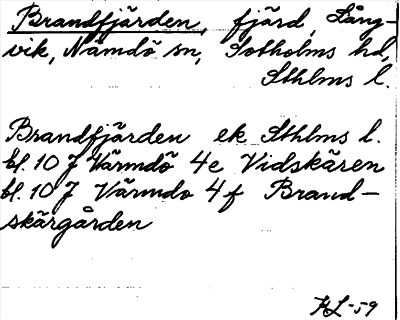 Brandfjärden, fjärd, Lång-
vik, Nämdö sn, Sotholms hd,
Sthlms l.
Brandfjärden ek Sthlms l.
bl. 10 J Värmdö 4e Vidskären
bl. 10 J Värmdö 4f Brand-
skärgården
HL -59